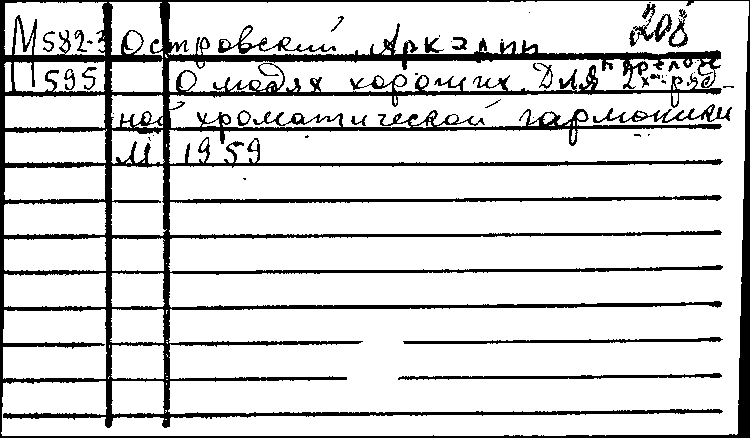 208
М 582-3 Островский, Аркадий
П 595 О людях хороших. Для 2х-ряд-
ной хроматической гармоники
М. 1959